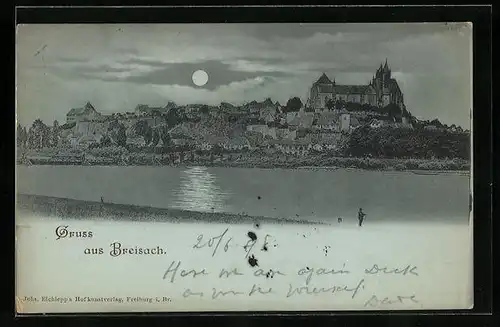 Gruss
aus Breisach.
20/6.98
Here we are again Dick
as you see yourself
Joh. Elchlepp's Hofkunstverlag, Freiburg i. Br.